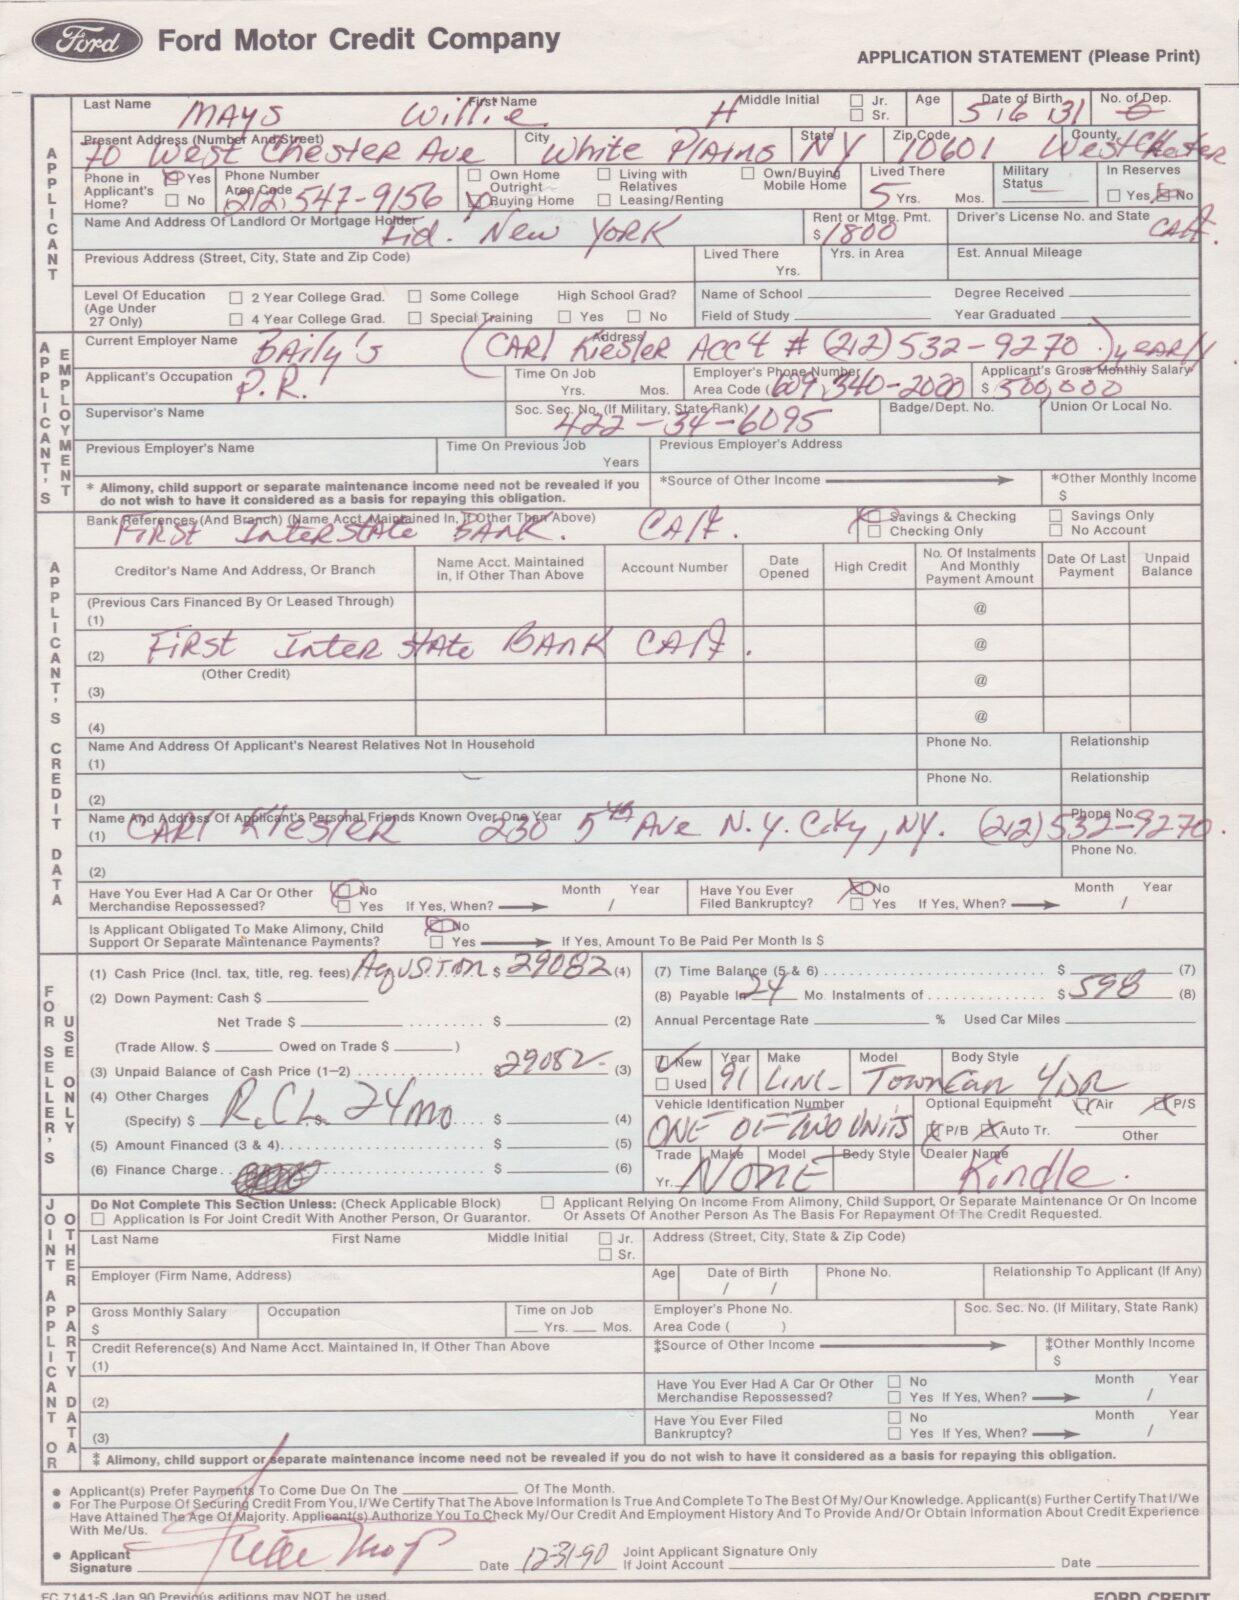 Ford Ford Motor Credit Company
APPLICATION STATEMENT (Please Print)
APPLICANT
Last Name First Name Middle Initial Jr. Sr. Age Date of Birth No. of Dep.
MAYS Willie H 5 16 131 0
Present Address (Number And Street) City State Zip Code County
70 West Chester Ave White Plains NY 10601 West Chester
Phone in Applicant's Home? Yes No Phone Number Area Code Own Home Outright Buying Home Living with Relatives Leasing/Renting Own/Buying Mobile Home Lived There Yrs. Mos. Military Status In Reserves Yes No
212, 547-9156 5
Name And Address Of Landlord Or Mortgage Holder Rent or Mtge. Pmt. $ Driver's License No. and State
Fid. New YORK 1800 CAlf.
Previous Address (Street, City, State and Zip Code) Lived There Yrs. Yrs. in Area Est. Annual Mileage
Level Of Education (Age Under 27 Only) 2 Year College Grad. 4 Year College Grad. Some College Special Training High School Grad? Yes No Name of School Degree Received
Field of Study Year Graduated
APPLICANT'S EMPLOYMENT
Current Employer Name Address
BAily's (CARl Kiesler ACCt # (212) 532-9270.) yEARly
Applicant's Occupation Time On Job Yrs. Mos. Employer's Phone Number Area Code ( Applicant's Gross Monthly Salary $
P.R. 609, 340-2000 500,000
Supervisor's Name Soc. Sec. No. (If Military, State Rank) Badge/Dept. No. Union Or Local No.
422-34-6095
Previous Employer's Name Time On Previous Job Years Previous Employer's Address
* Alimony, child support or separate maintenance income need not be revealed if you do not wish to have it considered as a basis for repaying this obligation. *Source of Other Income *Other Monthly Income $
APPLICANT'S CREDIT DATA
Bank References (And Branch) (Name Acct. Maintained In, If Other Than Above) Savings & Checking Checking Only Savings Only No Account
FIRST InterstAte BANK. CAlf.
Creditor's Name And Address, Or Branch Name Acct. Maintained In, If Other Than Above Account Number Date Opened High Credit No. Of Instalments And Monthly Payment Amount Date Of Last Payment Unpaid Balance
(Previous Cars Financed By Or Leased Through)
(1) @
(2) FiRSt Inter State BANK CAlf. @
(Other Credit)
(3) @
(4) @
Name And Address Of Applicant's Nearest Relatives Not In Household Phone No. Relationship
(1)
Phone No. Relationship
(2)
Name And Address Of Applicant's Personal Friends Known Over One Year Phone No.
(1) CARl Kiesler 230 5th Ave N.Y. City, NY. (212) 532-9270.
(2) Phone No.
Have You Ever Had A Car Or Other Merchandise Repossessed? No Yes If Yes, When? Month / Year Have You Ever Filed Bankruptcy? No Yes If Yes, When? Month / Year
Is Applicant Obligated To Make Alimony, Child Support Or Separate Maintenance Payments? No Yes If Yes, Amount To Be Paid Per Month Is $
FOR SELLER'S USE ONLY
(1) Cash Price (Incl. tax, title, reg. fees) $ 29082 (4)
(2) Down Payment: Cash $
Net Trade $ $ (2)
(Trade Allow. $ Owed on Trade $ )
(3) Unpaid Balance of Cash Price (1-2) $ 29082- (3)
(4) Other Charges
(Specify) $ R.CL. 24 mo $ (4)
(5) Amount Financed (3 & 4) $ (5)
(6) Finance Charge $ (6)
(7) Time Balance (5 & 6) $ (7)
(8) Payable In 24 Mo. Instalments of $ 598 (8)
Annual Percentage Rate % Used Car Miles
New Used Year Make Model Body Style
91 LINC TownCar 4DR
Vehicle Identification Number Optional Equipment Air P/S
ONE OF TWO UNITS P/B Auto Tr. Other
Trade Yr. Make Model Body Style Dealer Name
NONE Kindle.
JOINT APPLICANT OR OTHER PARTY DATA
Do Not Complete This Section Unless: (Check Applicable Block)
Application Is For Joint Credit With Another Person, Or Guarantor.
Applicant Relying On Income From Alimony, Child Support, Or Separate Maintenance Or On Income Or Assets Of Another Person As The Basis For Repayment Of The Credit Requested.
Last Name First Name Middle Initial Jr. Sr. Address (Street, City, State & Zip Code)
Employer (Firm Name, Address) Age Date of Birth / / Phone No. Relationship To Applicant (If Any)
Gross Monthly Salary $ Occupation Time on Job Yrs. Mos. Employer's Phone No. Area Code ( ) Soc. Sec. No. (If Military, State Rank)
Credit Reference(s) And Name Acct. Maintained In, If Other Than Above *Source of Other Income *Other Monthly Income $
(1)
(2) Have You Ever Had A Car Or Other Merchandise Repossessed? No Yes If Yes, When? Month / Year
(3) Have You Ever Filed Bankruptcy? No Yes If Yes, When? Month / Year
* Alimony, child support or separate maintenance income need not be revealed if you do not wish to have it considered as a basis for repaying this obligation.
• Applicant(s) Prefer Payments To Come Due On The Of The Month.
• For The Purpose Of Securing Credit From You, I/We Certify That The Above Information Is True And Complete To The Best Of My/Our Knowledge. Applicant(s) Further Certify That I/We
Have Attained The Age Of Majority. Applicant(s) Authorize You To Check My/Our Credit And Employment History And To Provide And/Or Obtain Information About Credit Experience
With Me/Us.
• Applicant Signature Willie Mays Date 12-31-90 Joint Applicant Signature Only If Joint Account Date
FC 7141-S Jan 90 Previous editions may NOT be used. FORD CREDIT